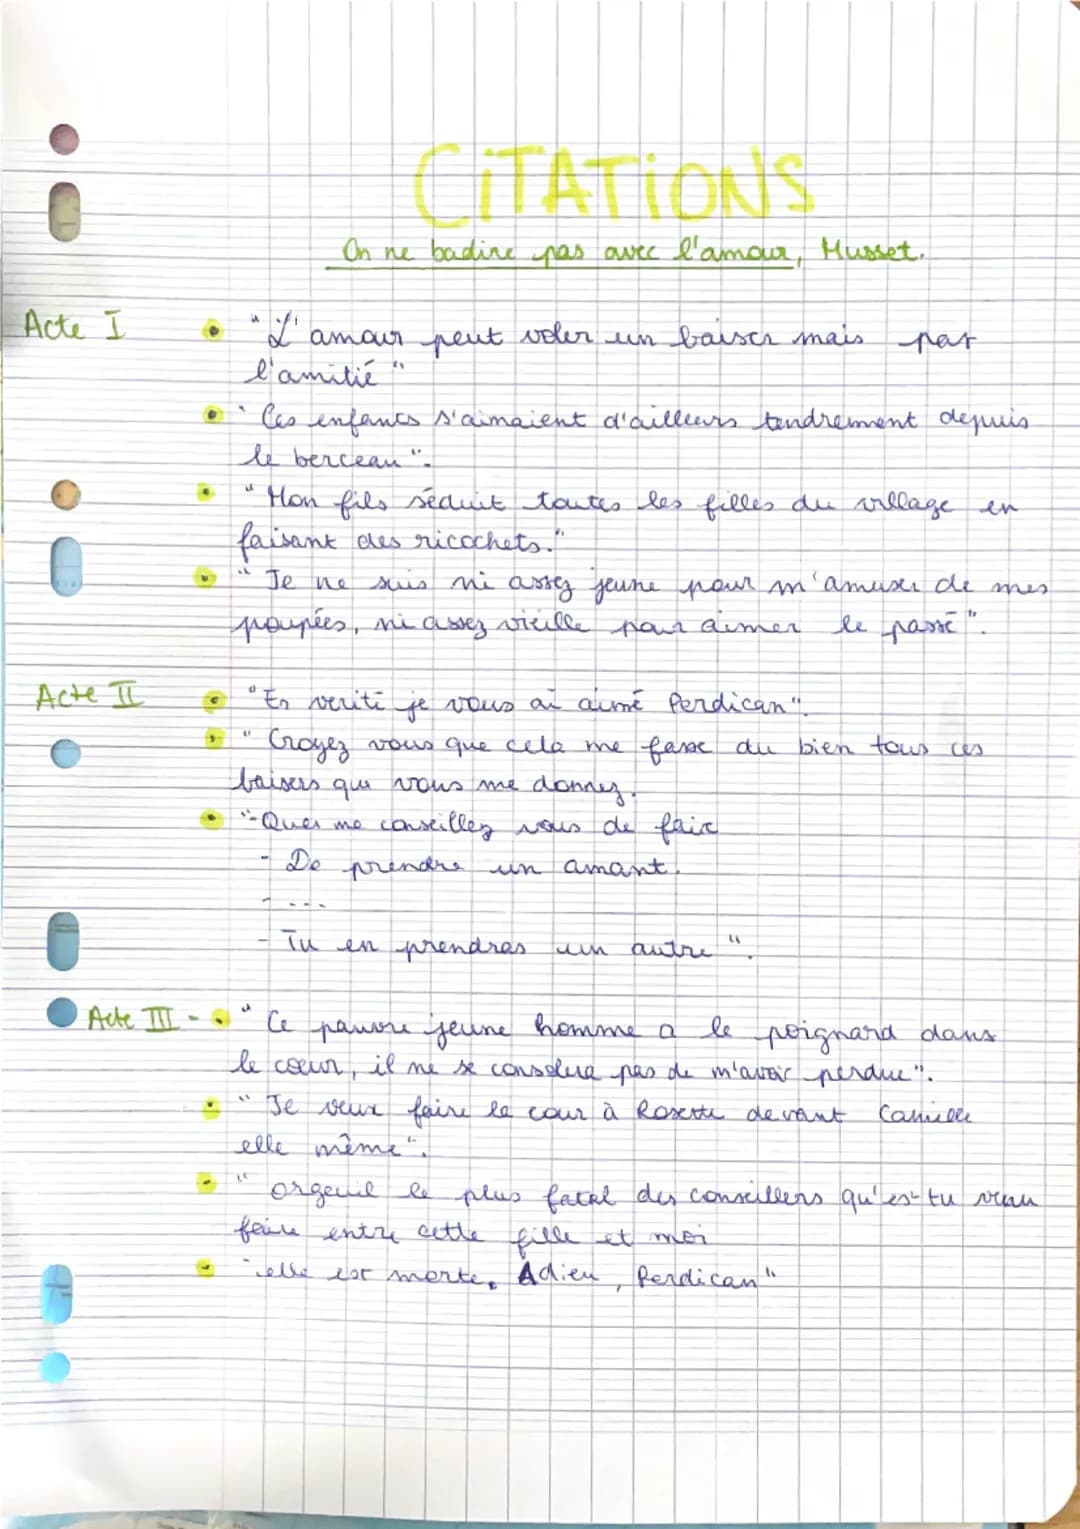 CiTATiONS
On ne badine pas avec l'amour, Musset.
Acte I
"L'amour peut voler un baiser mais pas
l'amitié"
"Ces enfants s'aimaient d'ailleurs tendrement depuis
le berceau".
"Mon fils séduit toutes les filles du village en
faisant des ricochets."
"Je ne suis ni assez jeune pour m'amuser de mes
poupées, ni assez vieille pour aimer le passé".
Acte II
"En verité je vous ai aimé Perdican".
"Croyez vous que cela me fasse du bien tous ces
baisers que vous me donnez.
"-Que me conseillez vous de faire
- De prendre un amant.
- ...
- Tu en prendras un autre".
Acte III - "Ce pauvre jeune homme a le poignard dans
le cœur, il ne se consolera pas de m'avoir perdue".
"Je veux faire la cour à Rosette devant Camille
elle même".
"orgeuil le plus fatal des conseillers qu'es-tu venu
faire entre cette fille et moi
"elle est morte. Adieu, Perdican"